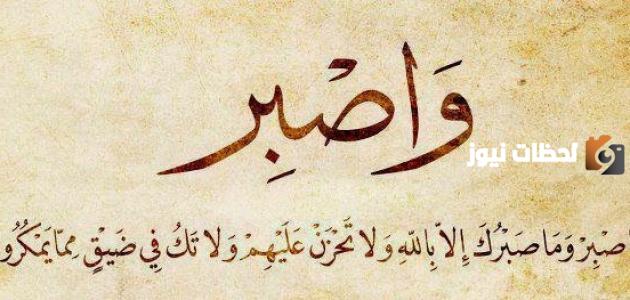 وَاصْبِر
لحظات نيوز
صْبِرْ وَمَا صَبْرُكَ إِلاَّ بِاللهِ وَلَا تَحْزَنْ عَلَيْهِمْ وَلَا تَكُ فِي ضَيْقٍ مِمَّا يَمْكُرُو